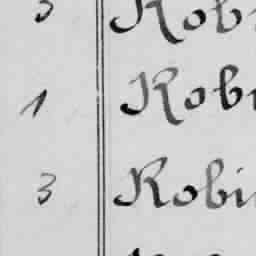 3 Robi
1 Robi
3 Robi